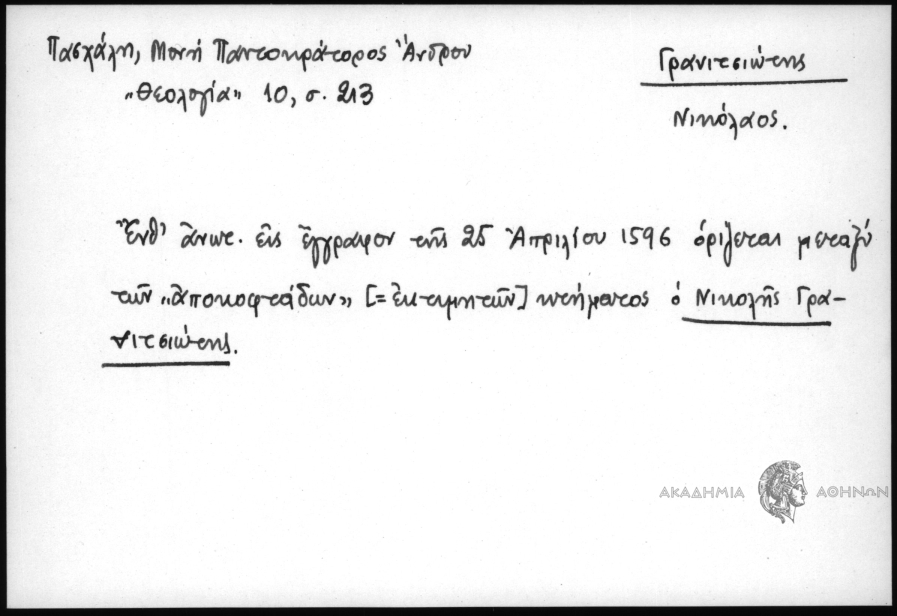 Πασχάλη, Μονή Παντοκράτορος Ἄνδρου
„Θεολογία" 10, σ. 213
Γρανιτσιώτης
Νικόλαος.
Ἔνθ' ἄνωτ. εἰς ἔγγραφον τῆς 25 Ἀπριλίου 1596 ὁρίζεται μεταξύ
τῶν „ἀποκοφτάδων" [= ἐκτιμητῶν] κτήματος ὁ Νικολῆς Γρα-
νιτσιώτης.
ΑΚΑΔΗΜΙΑ ΑΘΗΝΩΝ